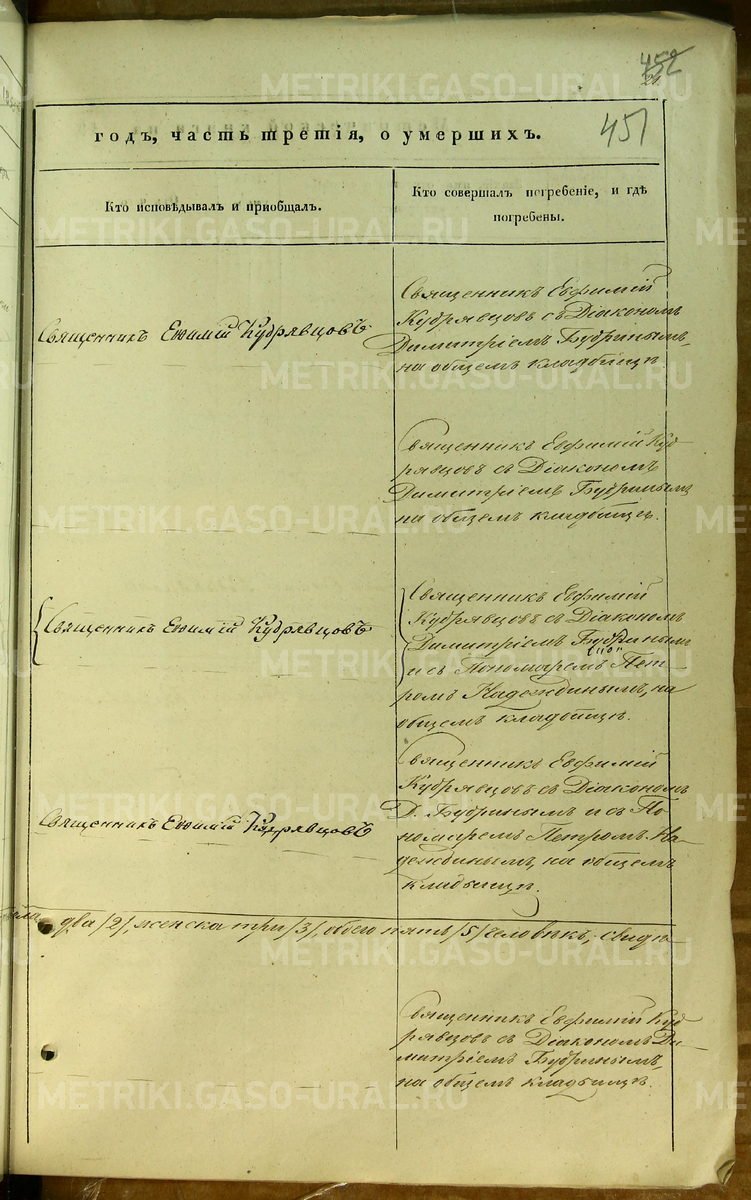 452
21
451
годъ, часть третія, о умершихъ.
Кто исповѣдывалъ и пріобщалъ.
Кто совершалъ погребеніе, и гдѣ
погребены.
Священникъ Евѳимій Кудрявцовъ
Священникъ Евфимій
Кудрявцовъ съ Діакономъ
Димитріемъ Будринымъ,
на общемъ кладбищѣ.
Священникъ Евфимій Куд
рявцовъ съ Діакономъ
Димитріемъ Будринымъ
на общемъ кладбищѣ.
Священникъ Евѳимій Кудрявцовъ
Священникъ Евфимій
Кудрявцовъ съ Діакономъ
Димитріемъ Будринымъ
и съ Пономаремъ Пет-
ромъ Надеждинымъ, на
общемъ кладбищѣ.
Священникъ Евѳимій Кудрявцовъ
Священникъ Евфимій
Кудрявцовъ съ Діакономъ
Д. Будринымъ и съ По
номаремъ Петромъ На
деждинымъ, на общемъ
кладбищѣ.
два /2/, женска три /3/, обоего пять /5/ человѣкъ; свидѣ
Священникъ Евфимій Куд
рявцовъ съ Діакономъ Ди-
митріемъ Будринымъ,
на общемъ кладбищѣ.
METRIKI.GASO-URAL.RU